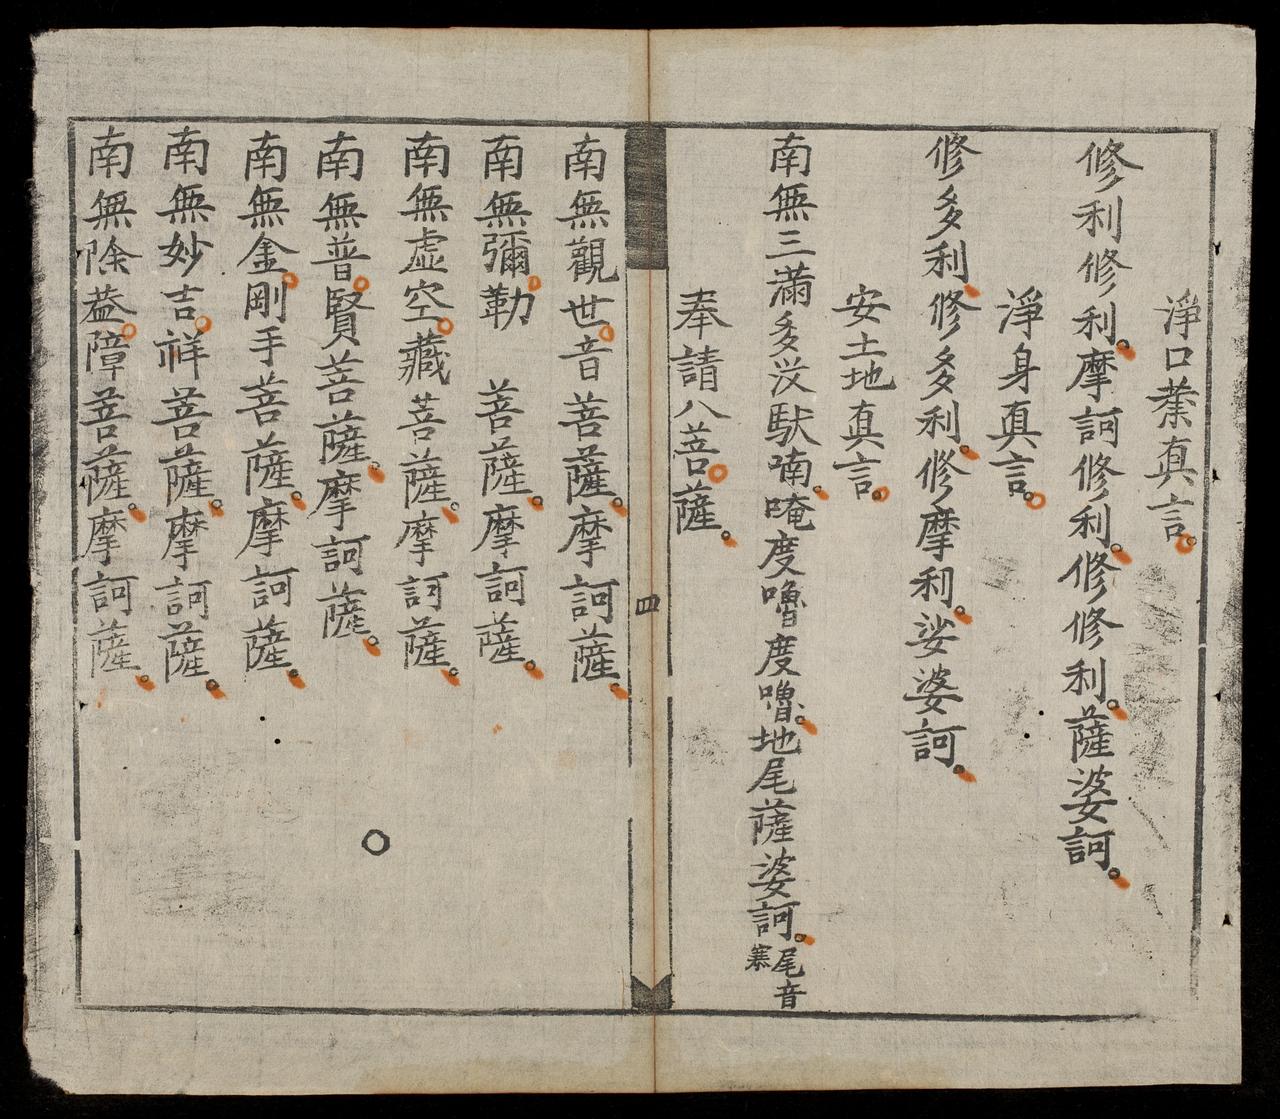 淨口業真言。
修利修利。摩訶修利。修修利。薩婆訶。
淨身真言。
修多利。修多利。修摩利。娑婆訶。
安土地真言。
南無三滿多沒馱喃。唵度嚕度嚕。地尾薩婆訶。尾音
奉請八菩薩。
四
南無觀世音菩薩。摩訶薩。
南無彌勒　菩薩。摩訶薩。
南無虛空藏菩薩。摩訶薩。
南無普賢菩薩。摩訶薩。
南無金剛手菩薩。摩訶薩。
南無妙吉祥菩薩。摩訶薩。
南無除葢障菩薩。摩訶薩。